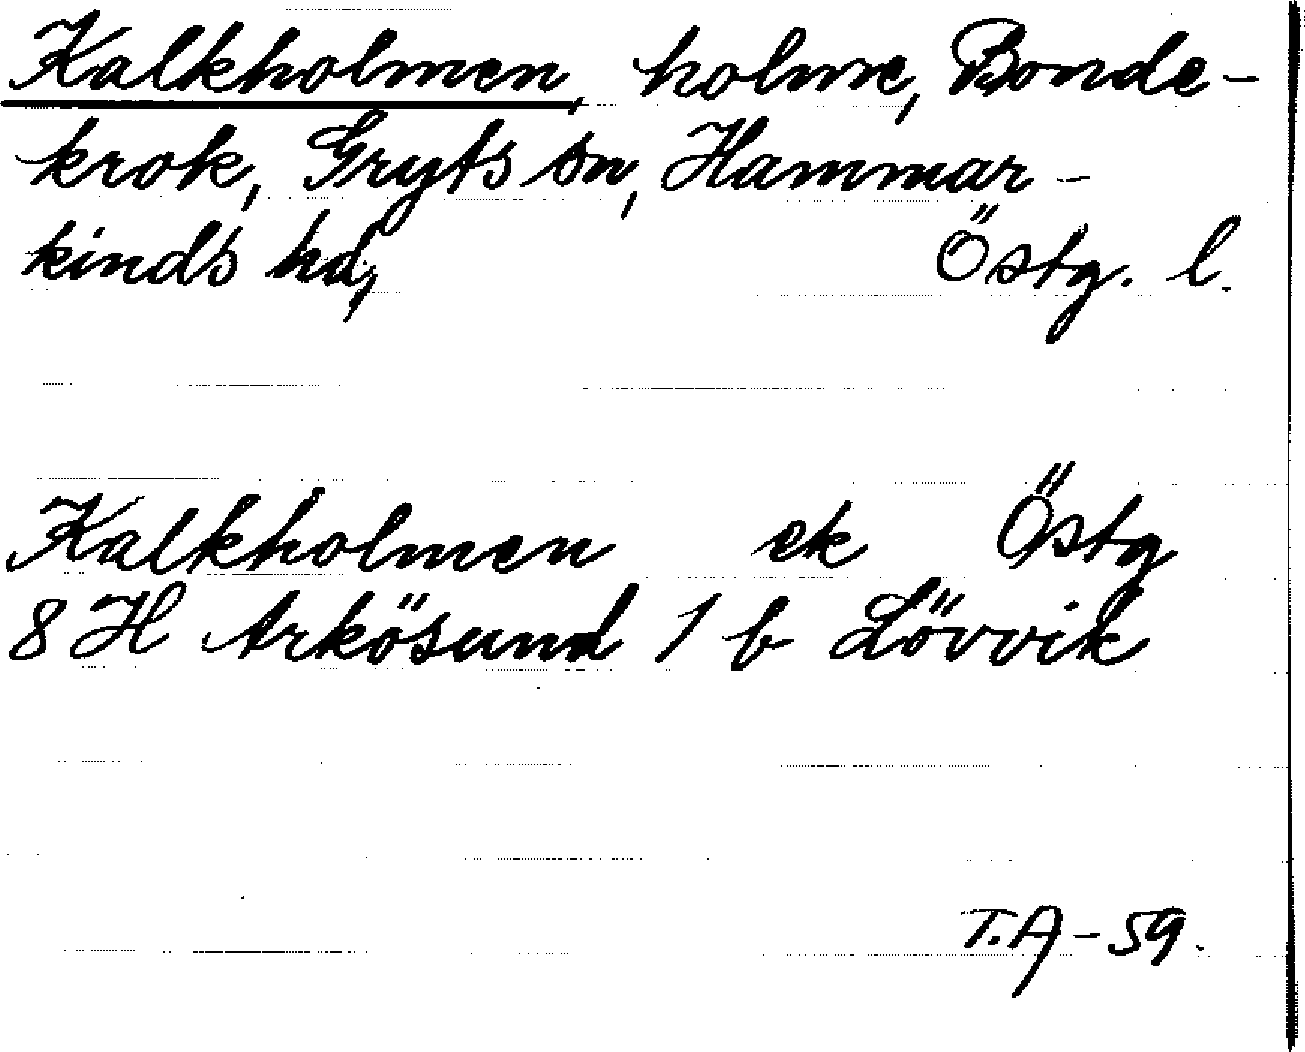 Kalkholmen, holme, Bonde-
krok, Gryts sn, Hammar-
kinds hd, Östg. l.
Kalkholmen ek Östg
8 H Arkösund 1 b Lövvik
T.A-59.